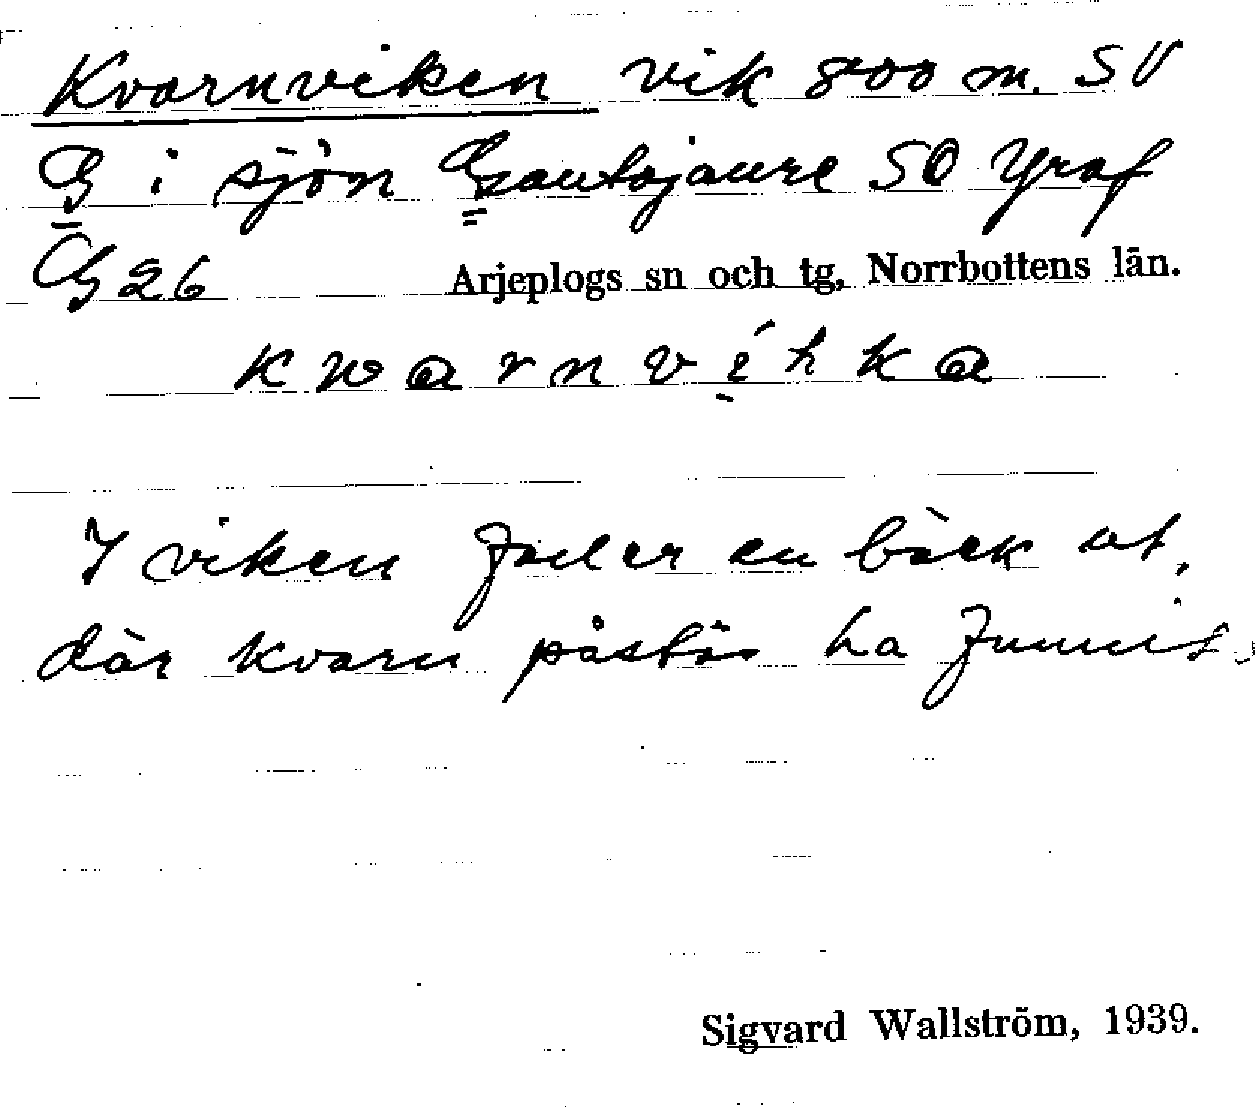 Kvarnviken vik 800 m. SV
G i sjön Gautojaure SO Yraf
G 26 Arjeplogs sn och tg, Norrbottens län.
k w a r n v í h k a
I viken faller en bäck ut,
där kvarn påstås ha funnits.
Sigvard Wallström, 1939.